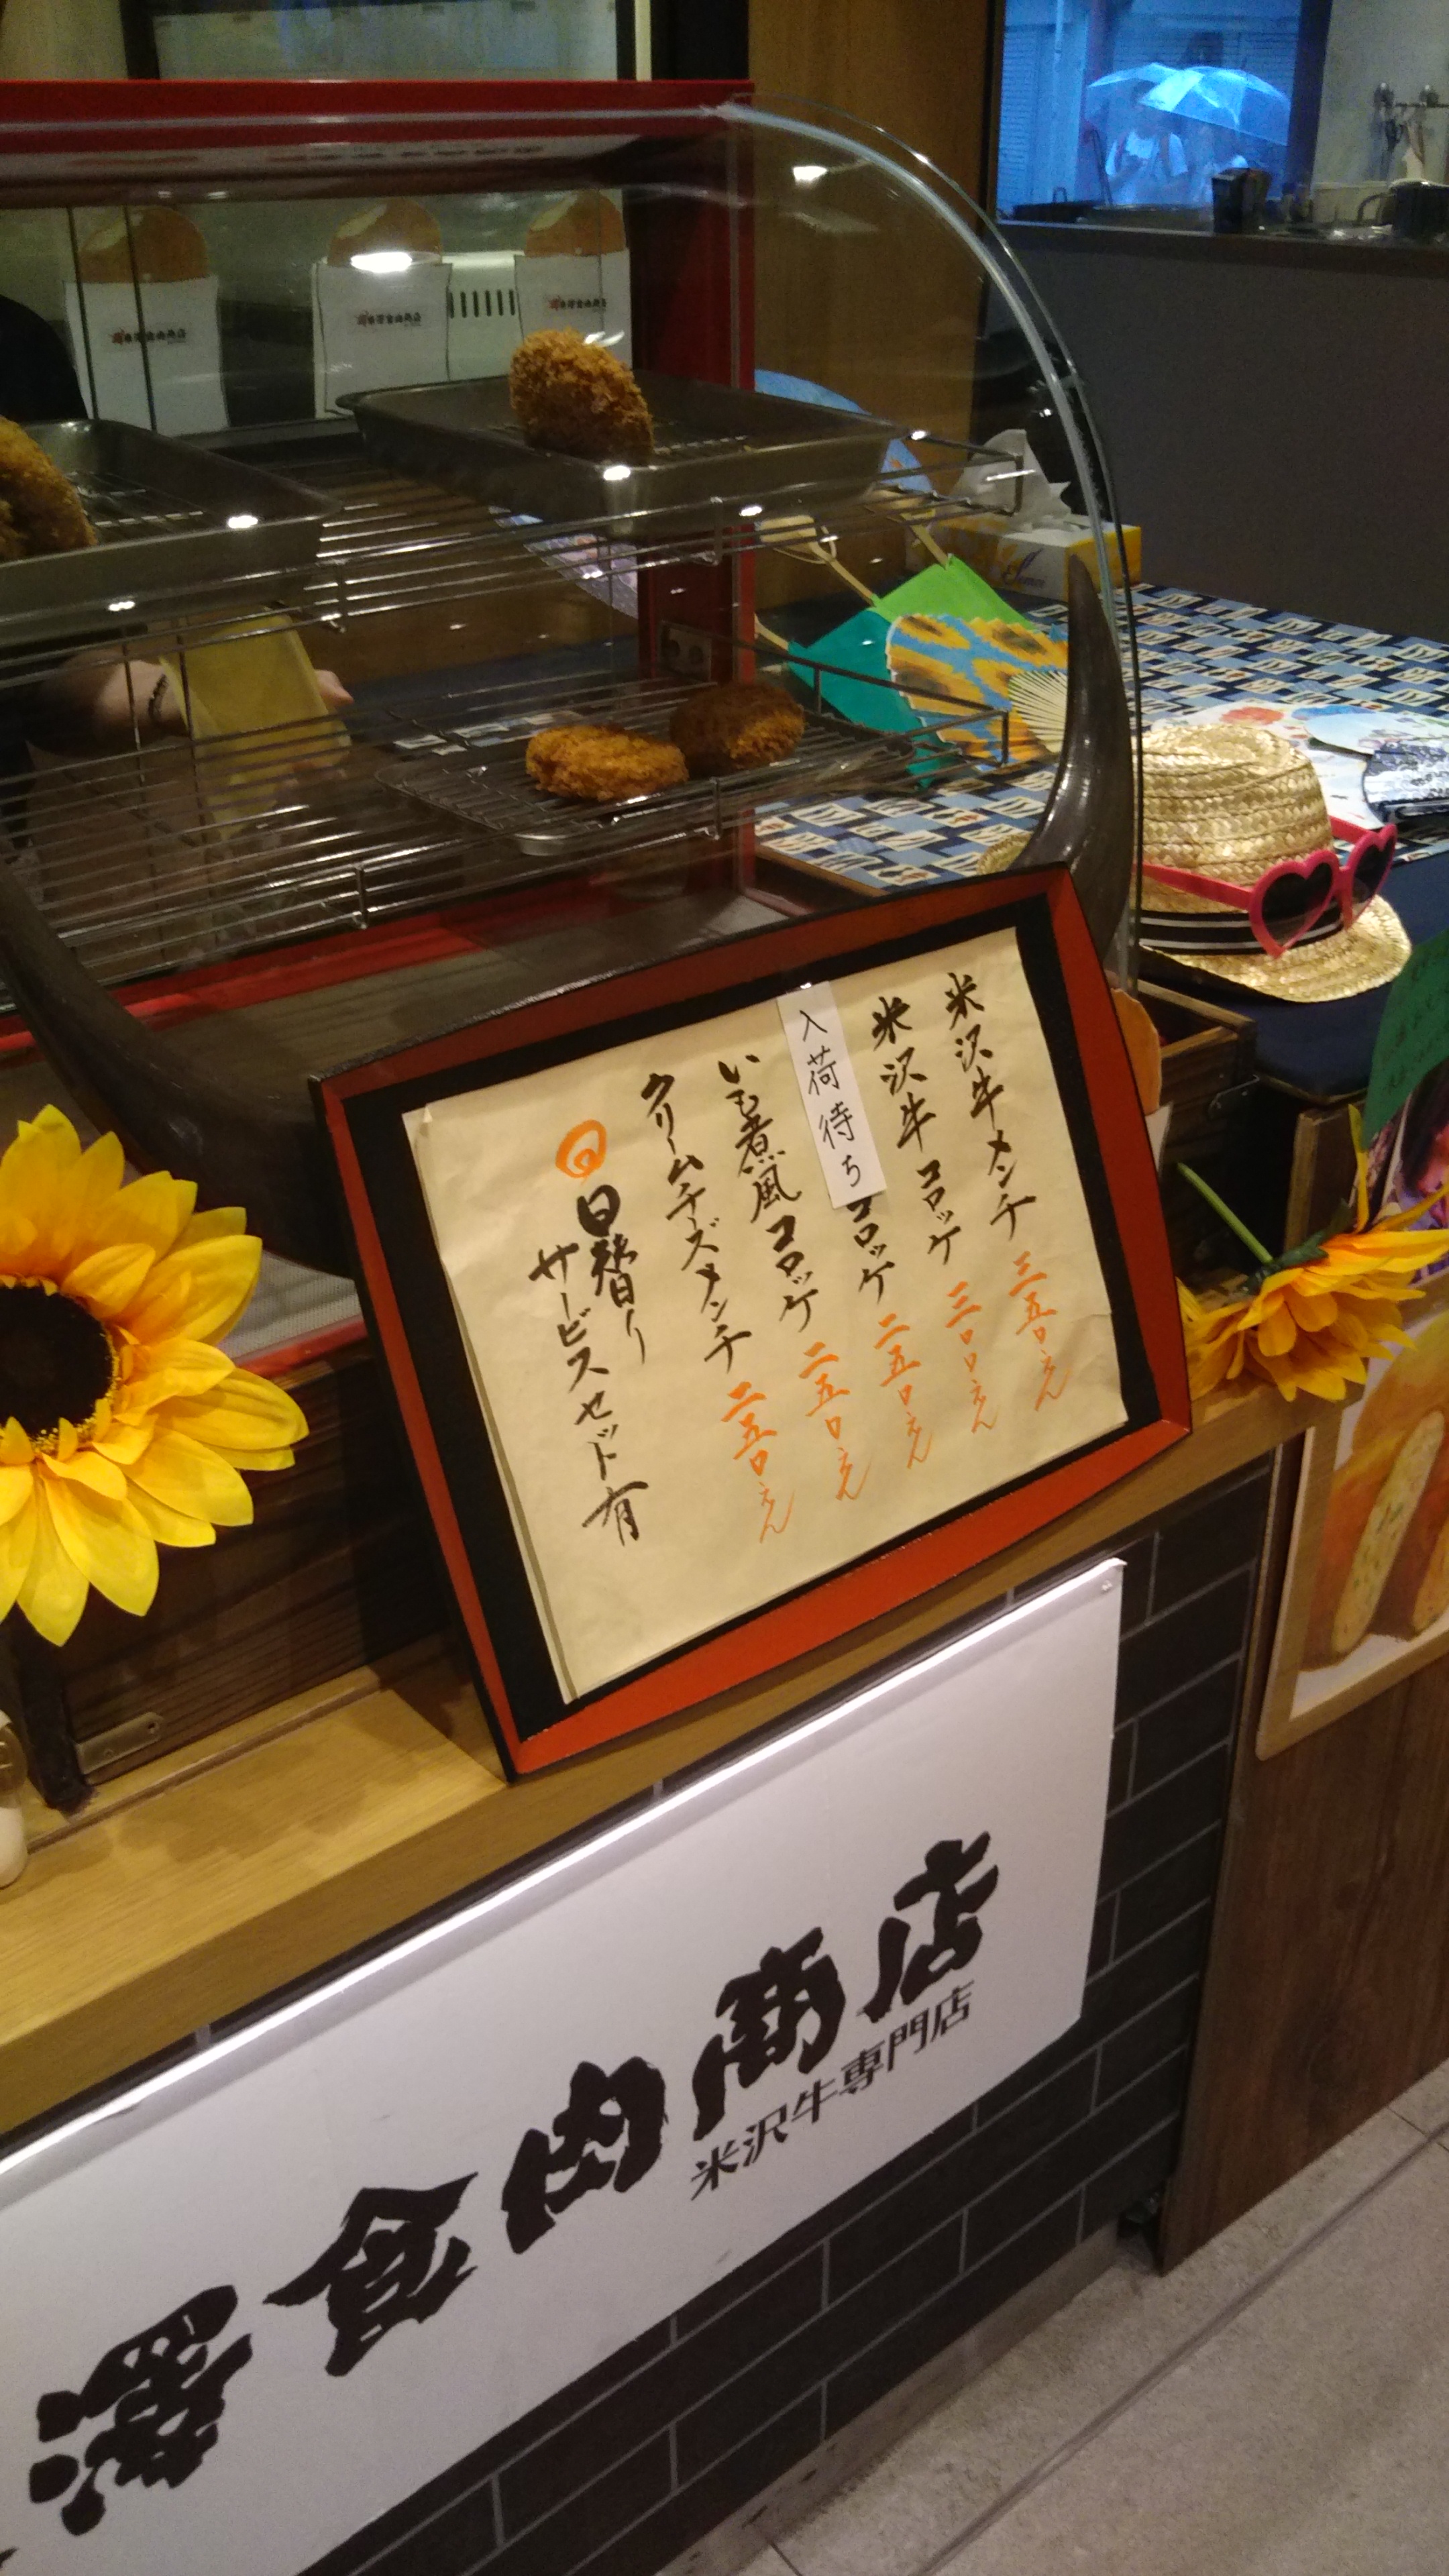 米沢牛メンチ 三五〇えん
米沢牛コロッケ 三〇〇えん
入荷待ち
コロッケ 二五〇えん
いも煮風コロッケ 二五〇えん
クリームチーズメンチ 二五〇えん
日替り
サービスセット有
澤食肉商店
米沢牛専門店